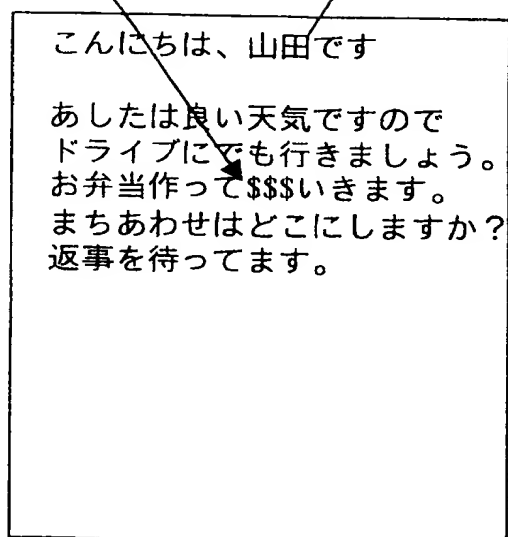 こんにちは、山田です
あしたは良い天気ですので
ドライブにでも行きましょう。
お弁当作って$$$いきます。
まちあわせはどこにしますか？
返事を待ってます。